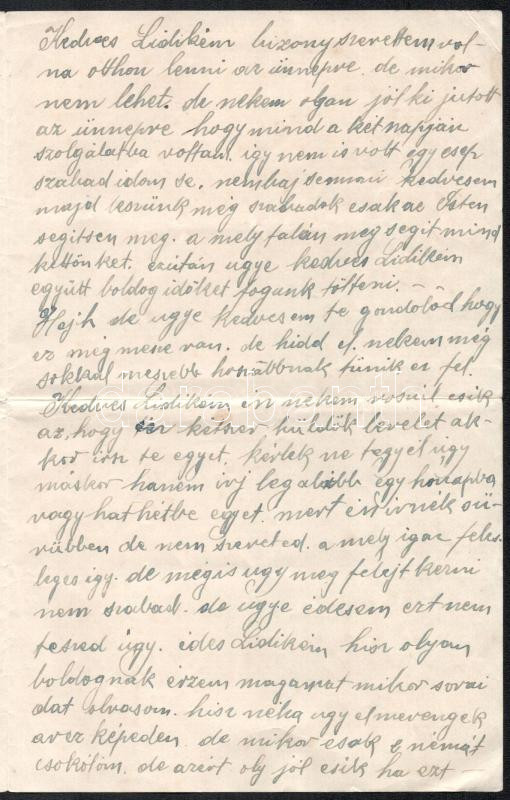 Kedves Lidikém bizony szerettem vol-
na otthon lenni az ünnepre de mikor
nem lehet. de nekem olyan jól ki jutott
az ünnepre hogy mind a két napján
szolgálatba voltam. így nem is volt egy csep
szabad időm se. nembaj semmi kedvesem
majd leszünk még szabadok csak az Isten
segitsen meg. a mely talán meg segit mind
kettőnket. ezután ugye kedves Lidikém
együtt boldog időket fogunk tölteni. –
Hejh de ugye kedvesem te gondolod hogy
ez még messe van. de hidd el nekem még
sokkal messebb hosszabbnak tűnik ez fel.
Kedves Lidikém én nekem rosiúl esik
az, hogy kétszer küldök levelet ak-
kor irsz te egyet. kérlek ne tegyél úgy
máskor hanem irj legalább egy hónapba
vagy hat hétbe egyet. mert én irnék sü-
rübben de nem szereted. a mely igaz feles-
leges igy. de mégis ugy meg felejtkezni
nem szabad. de ugye édesem ezt nem
teszed úgy. édes Lidikém hisz olyan
boldognak érzem magamat mikor sorai
dat olvasom. hisz néha ugy elmerengek
avez képeden. de mikor csak a némát
csokolom. de azért oly jól esik ha ezt –